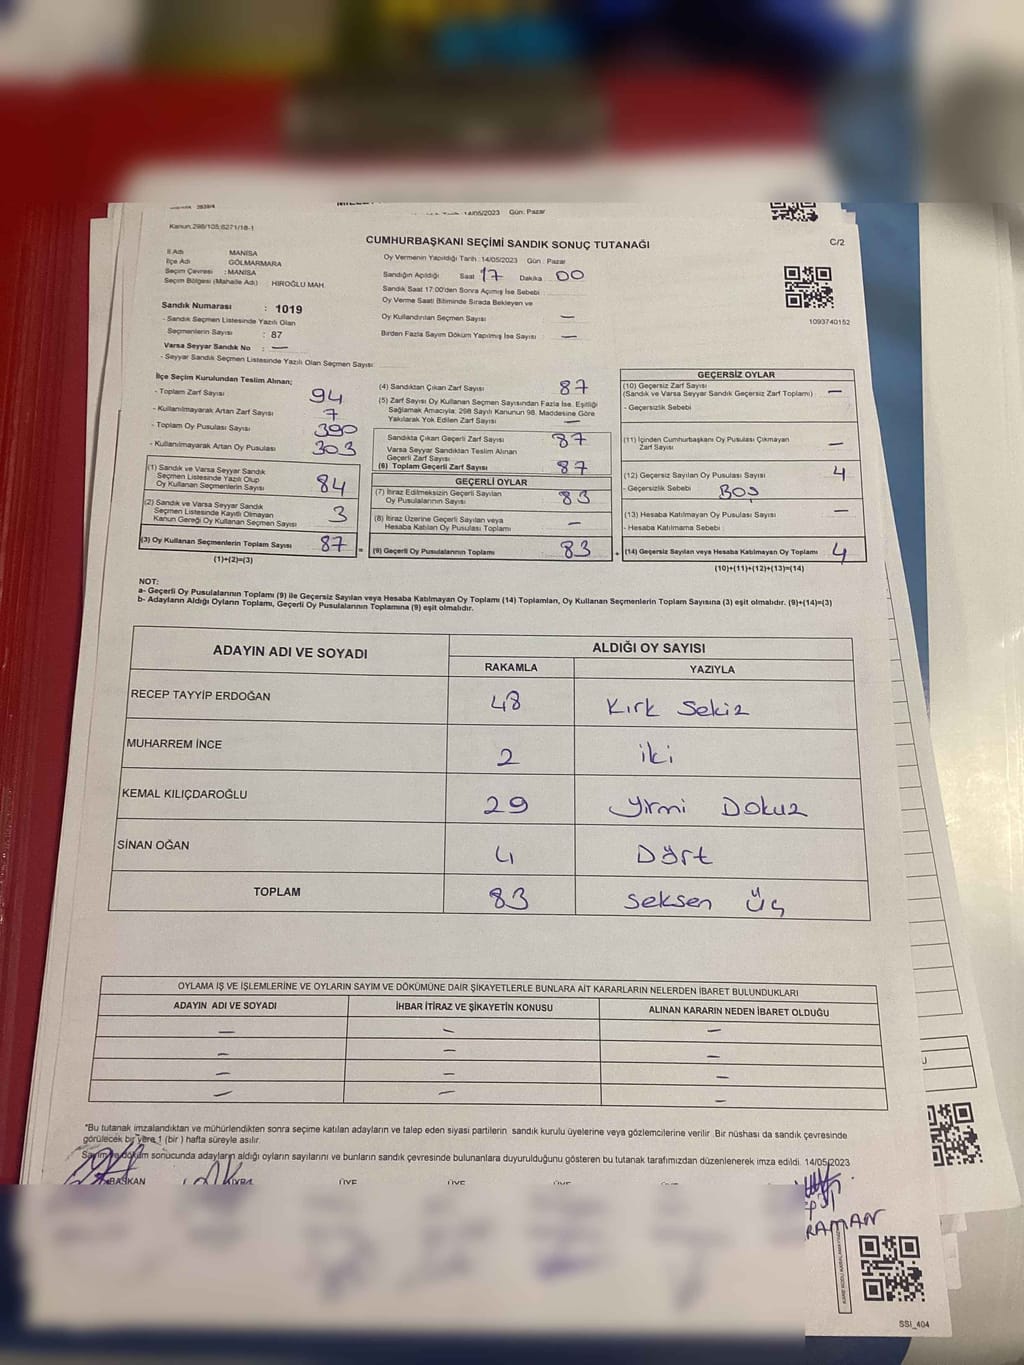 14/05/2023 Gün: Pazar
Kanun:298/105;6271/18-1
CUMHURBAŞKANI SEÇİMİ SANDIK SONUÇ TUTANAĞI
C/2
İl Adı : MANİSA
İlçe Adı : GÖLMARMARA
Seçim Çevresi : MANİSA
Seçim Bölgesi (Mahalle Adı) : HIROĞLU MAH.
Oy Vermenin Yapıldığı Tarih : 14/05/2023 Gün : Pazar
Sandığın Açıldığı Saat 17 Dakika 00
Sandık Saat 17:00'den Sonra Açımış İse Sebebi
Oy Verme Saati Bitiminde Sırada Bekleyen ve
Oy Kullandırılan Seçmen Sayısı —
Birden Fazla Sayım Döküm Yapılmış İse Sayısı —
1093740152
Sandık Numarası : 1019
- Sandık Seçmen Listesinde Yazılı Olan
Seçmenlerin Sayısı : 87
Varsa Seyyar Sandık No : —
- Seyyar Sandık Seçmen Listesinde Yazılı Olan Seçmen Sayısı:
İlçe Seçim Kurulundan Teslim Alınan;
- Toplam Zarf Sayısı 94
- Kullanılmayarak Artan Zarf Sayısı 7
- Toplam Oy Pusulası Sayısı 390
- Kullanılmayarak Artan Oy Pusulası 303
(1) Sandık ve Varsa Seyyar Sandık
Seçmen Listesinde Yazılı Olup
Oy Kullanan Seçmenlerin Sayısı 84
(2) Sandık ve Varsa Seyyar Sandık
Seçmen Listesinde Kayıtlı Olmayan
Kanun Gereği Oy Kullanan Seçmen Sayısı 3
(3) Oy Kullanan Seçmenlerin Toplam Sayısı 87
(1)+(2)=(3)
(4) Sandıktan Çıkan Zarf Sayısı 87
(5) Zarf Sayısı Oy Kullanan Seçmen Sayısından Fazla İse, Eşitliği
Sağlamak Amacıyla; 298 Sayılı Kanunun 98. Maddesine Göre
Yakılarak Yok Edilen Zarf Sayısı —
Sandıkta Çıkan Geçerli Zarf Sayısı 87
Varsa Seyyar Sandıktan Teslim Alınan
Geçerli Zarf Sayısı
(6) Toplam Geçerli Zarf Sayısı 87
GEÇERLİ OYLAR
(7) İtiraz Edilmeksizin Geçerli Sayılan
Oy Pusulalarının Sayısı 83
(8) İtiraz Üzerine Geçerli Sayılan veya
Hesaba Katılan Oy Pusulası Toplamı —
= (9) Geçerli Oy Pusulalarının Toplamı 83
GEÇERSİZ OYLAR
(10) Geçersiz Zarf Sayısı
(Sandık ve Varsa Seyyar Sandık Geçersiz Zarf Toplamı) —
- Geçersizlik Sebebi
(11) İçinden Cumhurbaşkanı Oy Pusulası Çıkmayan
Zarf Sayısı —
(12) Geçersiz Sayılan Oy Pusulası Sayısı 4
- Geçersizlik Sebebi BOŞ
(13) Hesaba Katılmayan Oy Pusulası Sayısı —
- Hesaba Katılmama Sebebi
+ (14) Geçersiz Sayılan veya Hesaba Katılmayan Oy Toplamı 4
(10)+(11)+(12)+(13)=(14)
NOT:
a- Geçerli Oy Pusulalarının Toplamı (9) ile Geçersiz Sayılan veya Hesaba Katılmayan Oy Toplamı (14) Toplamları, Oy Kullanan Seçmenlerin Toplam Sayısına (3) eşit olmalıdır. (9)+(14)=(3)
b- Adayların Aldığı Oyların Toplamı, Geçerli Oy Pusulalarının Toplamına (9) eşit olmalıdır.
ADAYIN ADI VE SOYADI
ALDIĞI OY SAYISI
RAKAMLA YAZIYLA
RECEP TAYYİP ERDOĞAN 48 Kırk Sekiz
MUHARREM İNCE 2 iki
KEMAL KILIÇDAROĞLU 29 Yirmi Dokuz
SİNAN OĞAN 4 Dört
TOPLAM 83 Seksen Üç
OYLAMA İŞ VE İŞLEMLERİNE VE OYLARIN SAYIM VE DÖKÜMÜNE DAİR ŞİKAYETLERLE BUNLARA AİT KARARLARIN NELERDEN İBARET BULUNDUKLARI
ADAYIN ADI VE SOYADI İHBAR İTİRAZ VE ŞİKAYETİN KONUSU ALINAN KARARIN NEDEN İBARET OLDUĞU
— — —
— — —
— — —
— — —
*Bu tutanak imzalandıktan ve mühürlendikten sonra seçime katılan adayların ve talep eden siyasi partilerin sandık kurulu üyelerine veya gözlemcilerine verilir. Bir nüshası da sandık çevresinde
görülecek bir yere 1 (bir) hafta süreyle asılır.
Sayım ve döküm sonucunda adayların aldığı oyların sayılarını ve bunların sandık çevresinde bulunanlara duyurulduğunu gösteren bu tutanak tarafımızdan düzenlenerek imza edildi. 14/05/2023
BAŞKAN ÜYE ÜYE ÜYE
RAMAN
SSİ_404